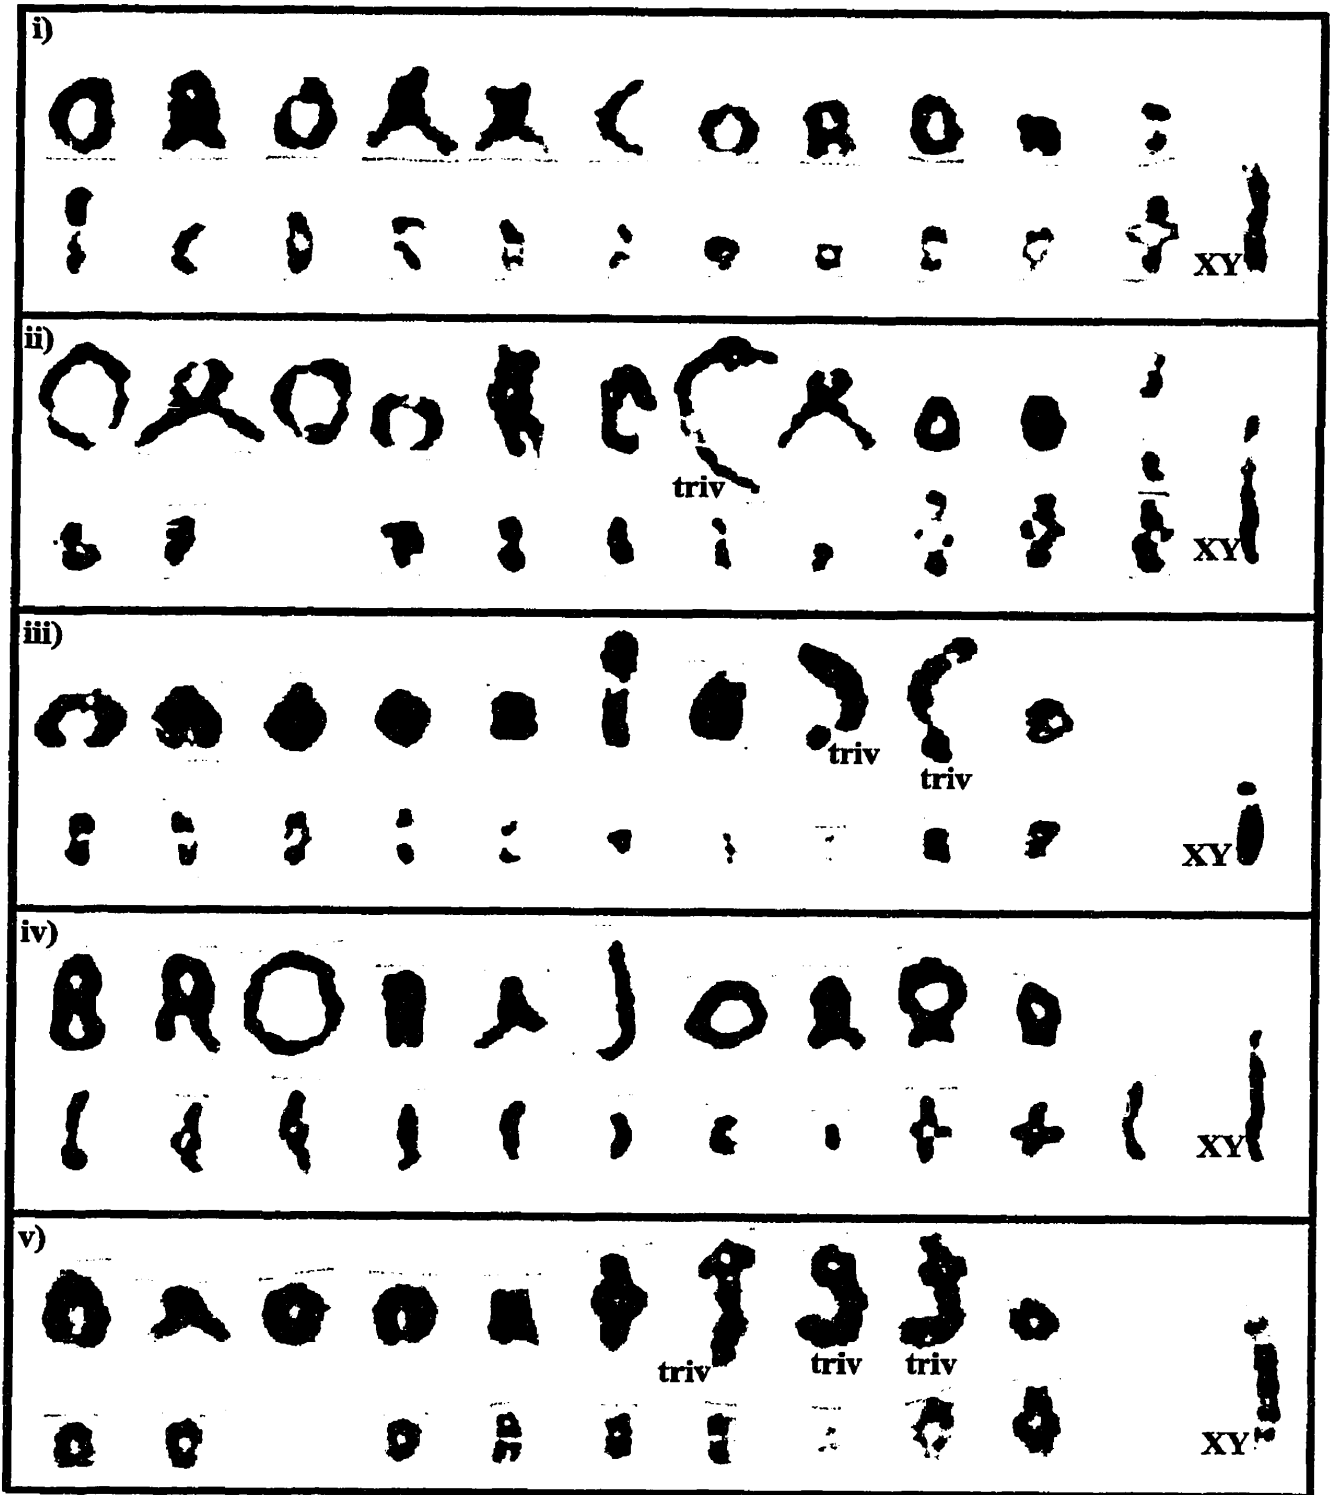 i)
XY
ii)
triv
XY
iii)
triv
triv
XY
iv)
XY
v)
triv
triv
triv
XY